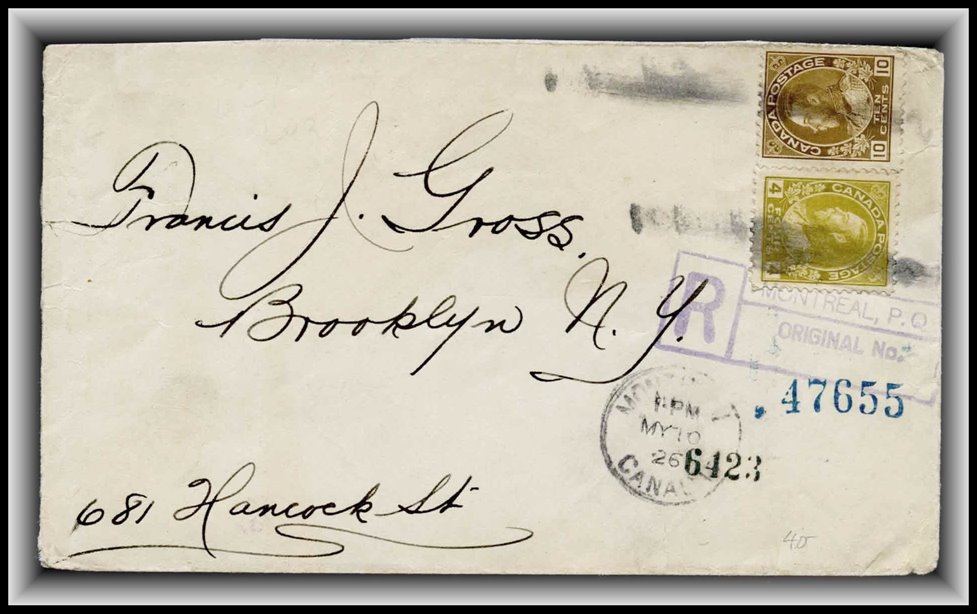 CANADA POSTAGE
10 TEN CENTS 10
CANADA POSTAGE
4
Francis J. Gross,
Brooklyn N. Y.
681 Hancock St
R
MONTREAL, P.Q
ORIGINAL No.
47655
PM
MY 10
26
CANADA
6423
40